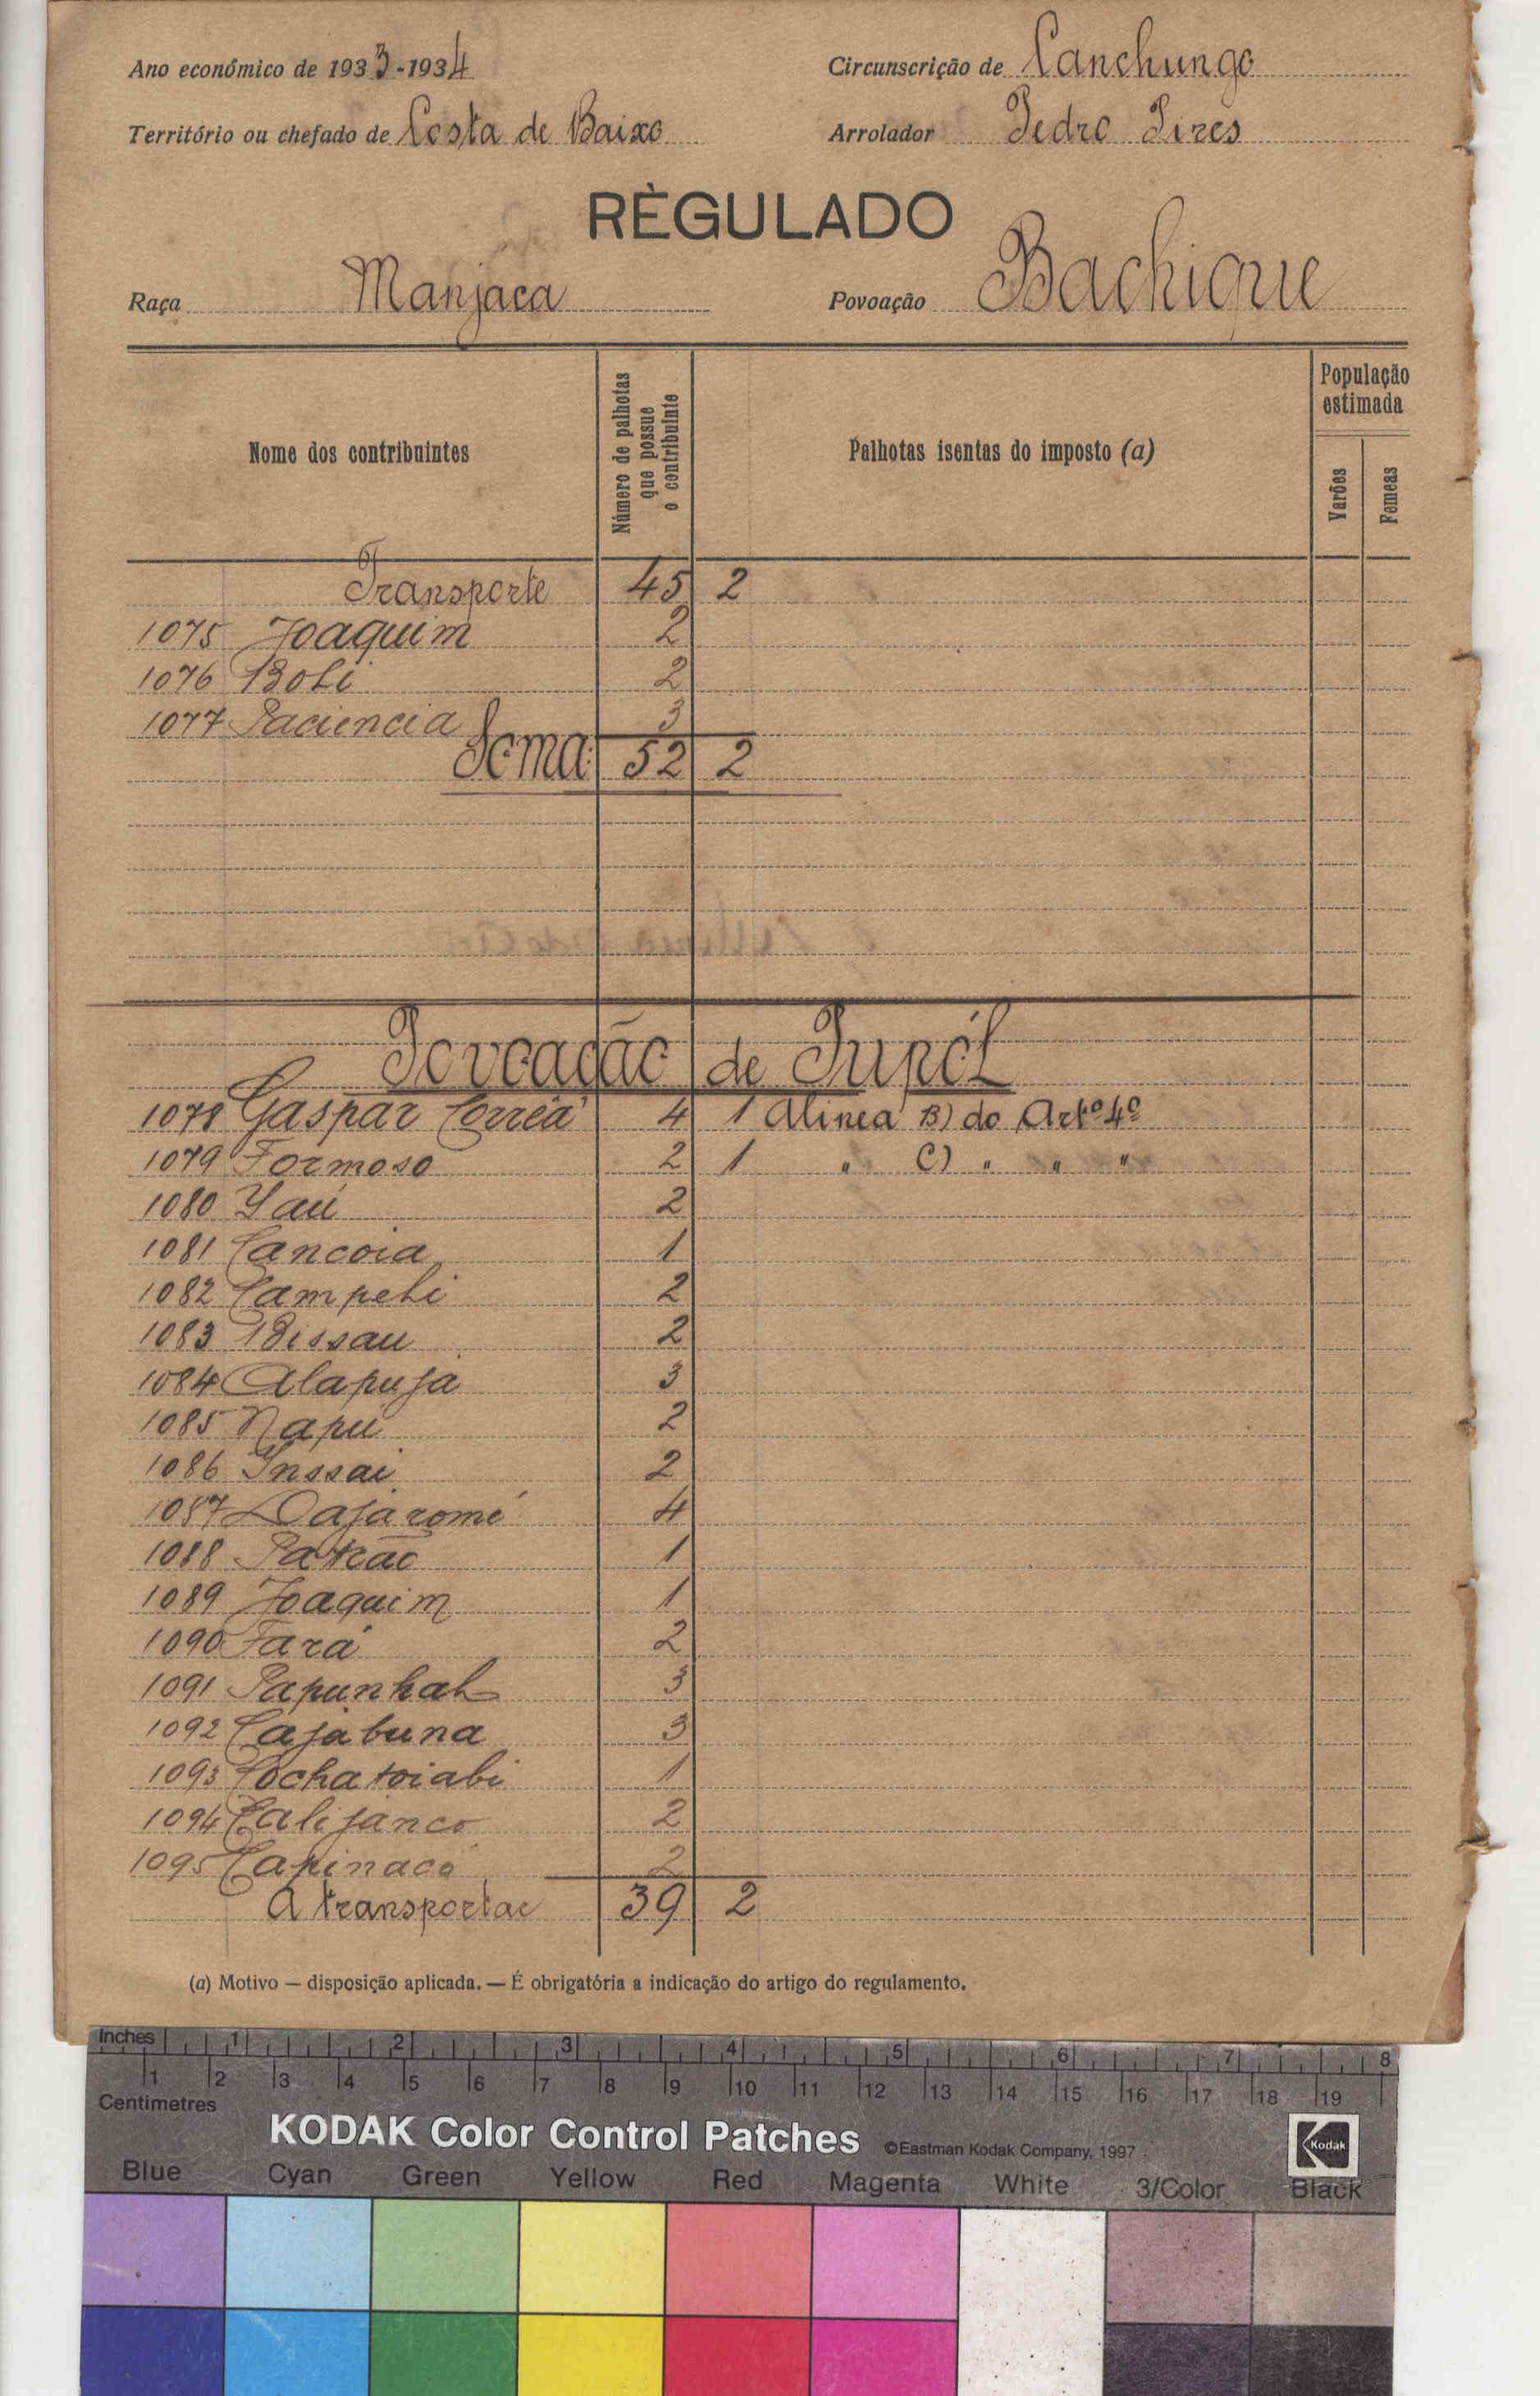 Ano económico de 1933-1934 Circunscrição de Canchungo
Território ou chefado de Costa de Baixo Arrolador Pedro Pires
RÈGULADO
Raça Manjaca Povoação Bachique
Nome dos contribuintes Número de palhotas que possue o contribuinte Palhotas isentas do imposto (a) População estimada Varões Femeas
Transporte 45 2
1075 Joaquim 2
1076 Boli 2
1077 Paciencia 3
Soma: 52 2
Povoação de Tupól
1078 Gaspar Corrêa 4 1 Alinea B) do Artº 4º
1079 Formoso 2 1 " C) " " "
1080 Yaú 2
1081 Cancoia 1
1082 Campeli 2
1083 Bissau 2
1084 Alapuja 3
1085 Napú 2
1086 Inssai 2
1087 Dajaromé 4
1088 Patrão 1
1089 Joaquim 1
1090 Fará 2
1091 Papunhal 3
1092 Cajabuna 3
1093 Cochatoiabi 1
1094 Calijanco 2
1095 Capinacó 2
A transportar 39 2
(a) Motivo — disposição aplicada. — É obrigatória a indicação do artigo do regulamento.
Inches 1 2 3 4 5 6 7 8
1 2 3 4 5 6 7 8 9 10 11 12 13 14 15 16 17 18 19
Centimetres
KODAK Color Control Patches ©Eastman Kodak Company, 1997 Kodak
Blue Cyan Green Yellow Red Magenta White 3/Color Black